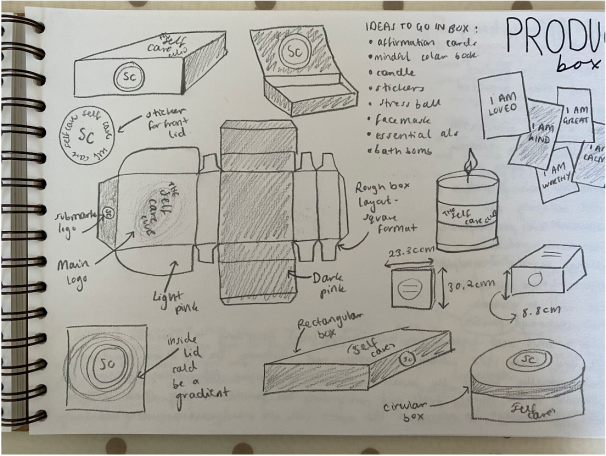 The
Self
care
club
SC
SC
IDEAS TO GO IN BOX :
• affirmation cards
• mindful color book
• candle
• stickers
• stress ball
• facemask
• essential oils
• bath bomb
PRODU
box
I AM
LOVED
I AM
KIND
I AM
GREAT
I AM
WORTHY
I AM
CALM
self care self care
SC
sticker
for front
lid
submark
logo
SC
The
Self
care
club
Main
logo
Light
pink
Dark
pink
Rough box
layout -
square
format
The Self
care club
23.3cm
30.2cm
8.8cm
SC
inside
lid
could
be a
gradient
Rectangular
box
Self
cares
SC
circular
box
SC
Self
cares